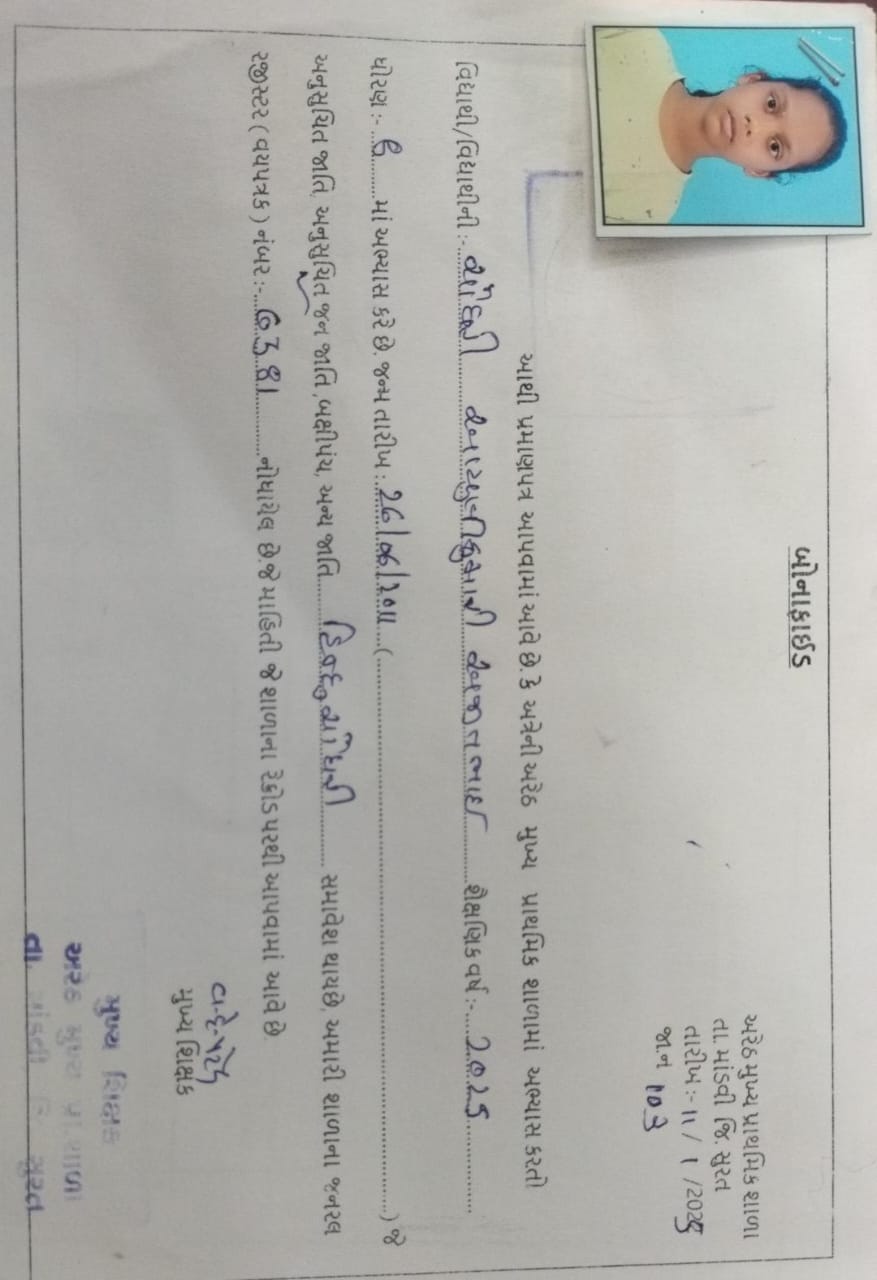 બોનાફાઈડ
અરેઠ મુખ્ય પ્રાથમિક શાળા
તા. માંડવી જિ. સુરત
તારીખ :- 11 / 1 / 202
જા.નં 103
આથી પ્રમાણપત્ર આપવામાં આવે છે. કે અત્રેની અરેઠ મુખ્ય પ્રાથમિક શાળામાં અભ્યાસ કરતી
વિદ્યાર્થી/વિદ્યાર્થીની :- ચૌધરી શૈક્ષણિક વર્ષ :- 2025
ધોરણ :- 8 માં અભ્યાસ કરે છે. જન્મ તારીખ : 2011 ( ) જે
અનુસુચિત જાતિ, અનુસુચિત જન જાતિ, બક્ષીપંચ, અન્ય જાતિ હિન્દુ ચૌધરી સમાવેશ થાય છે. અમારી શાળાના જનરલ
રજીસ્ટર ( વયપત્રક ) નંબર :- ૭૩૪૧ નોંધાયેલ છે. જે માહિતી જે શાળાના રેકોર્ડ પરથી આપવામાં આવે છે.
મુખ્ય શિક્ષક
મુખ્ય શિક્ષક
અરેઠ મુખ્ય પ્રા. શાળા
તા. માંડવી જિ. સુરત